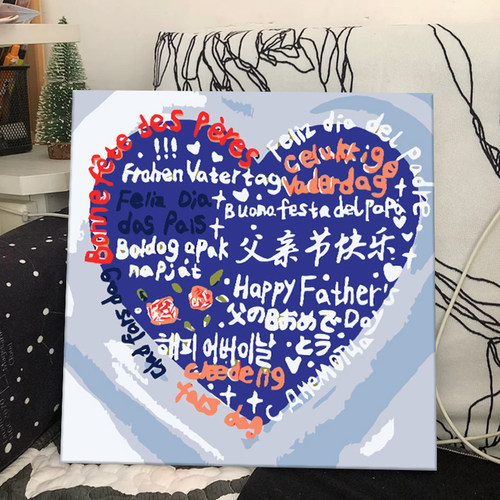 Bonne fête des Pères
Feliz dia del padre
!!!
Frohen Vatertag
Gelukkige
Vaderdag
Feliz Dia
dos Pais
Buona festa del papà
Boldog apák
napját
父亲节快乐
Happy Father's
Day
父の日おめで
とう
해피 어버이날
Glædelig
fars dag
Glad fars dag
С Днем отца